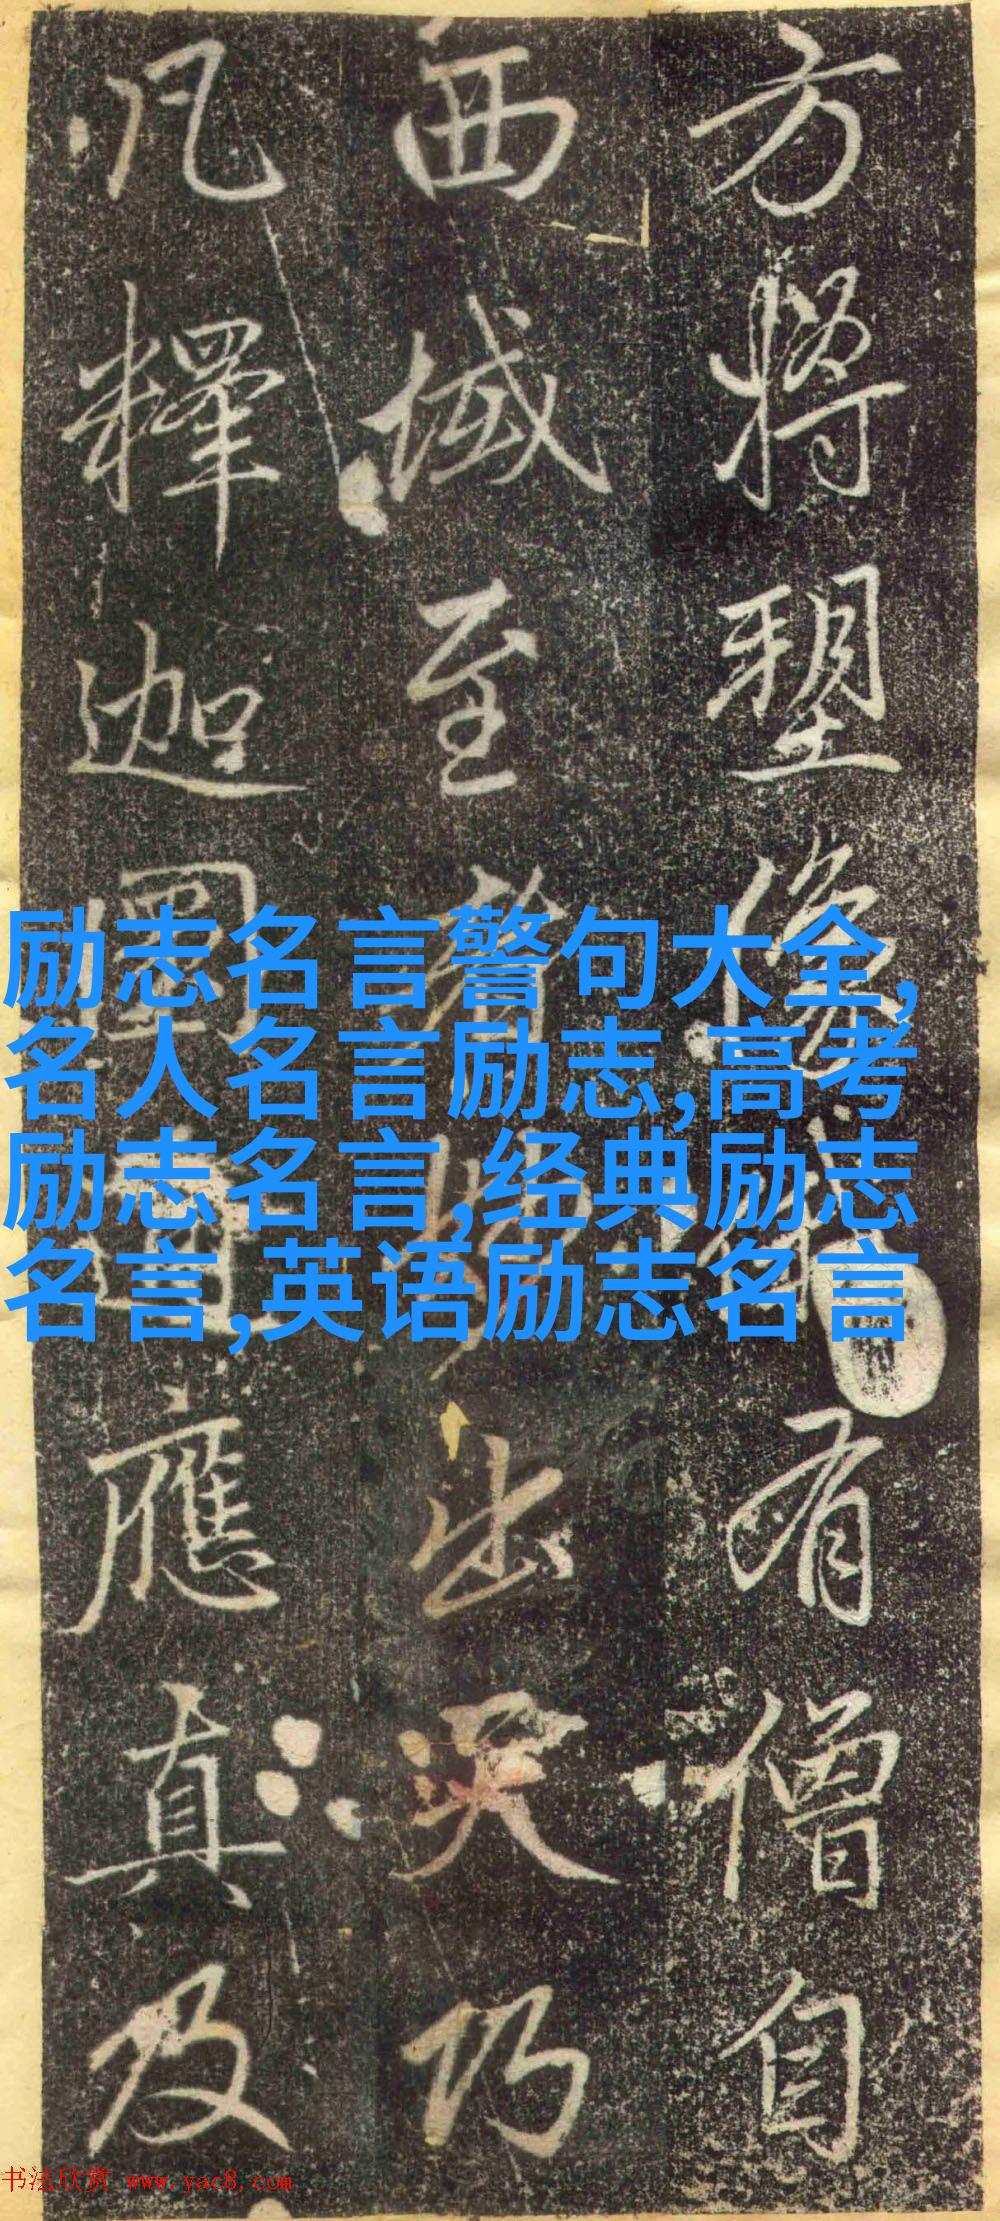 方將塑像有僧自
西域至出天巧
凡釋迦應真及
励志名言警句大全,
名人名言励志,高考
励志名言,经典励志
名言,英语励志名言
书法欣赏 www.yac8.com